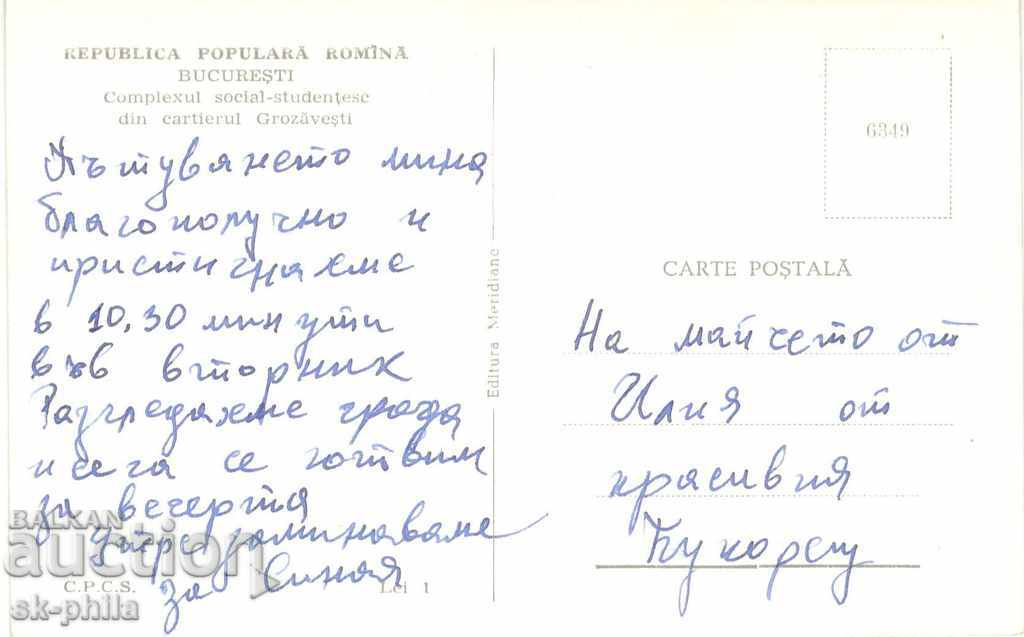 REPUBLICA POPULARĂ ROMÎNĂ
BUCUREŞTI
Complexul social-studenţesc
din cartierul Grozăveşti
Пътувянето мина
благополучно и
пристигнахме
в 10,30 минути
във вторник
Разгледахме града
и сега се готвим
за вечерта
утре заминаваме
за Синая
C.P.C.S.
Lei 1
Editura Meridiane
6349
CARTE POŞTALĂ
На майчето от
Илия от
красивия
Букурещ
BALKAN
auction
sk-phila